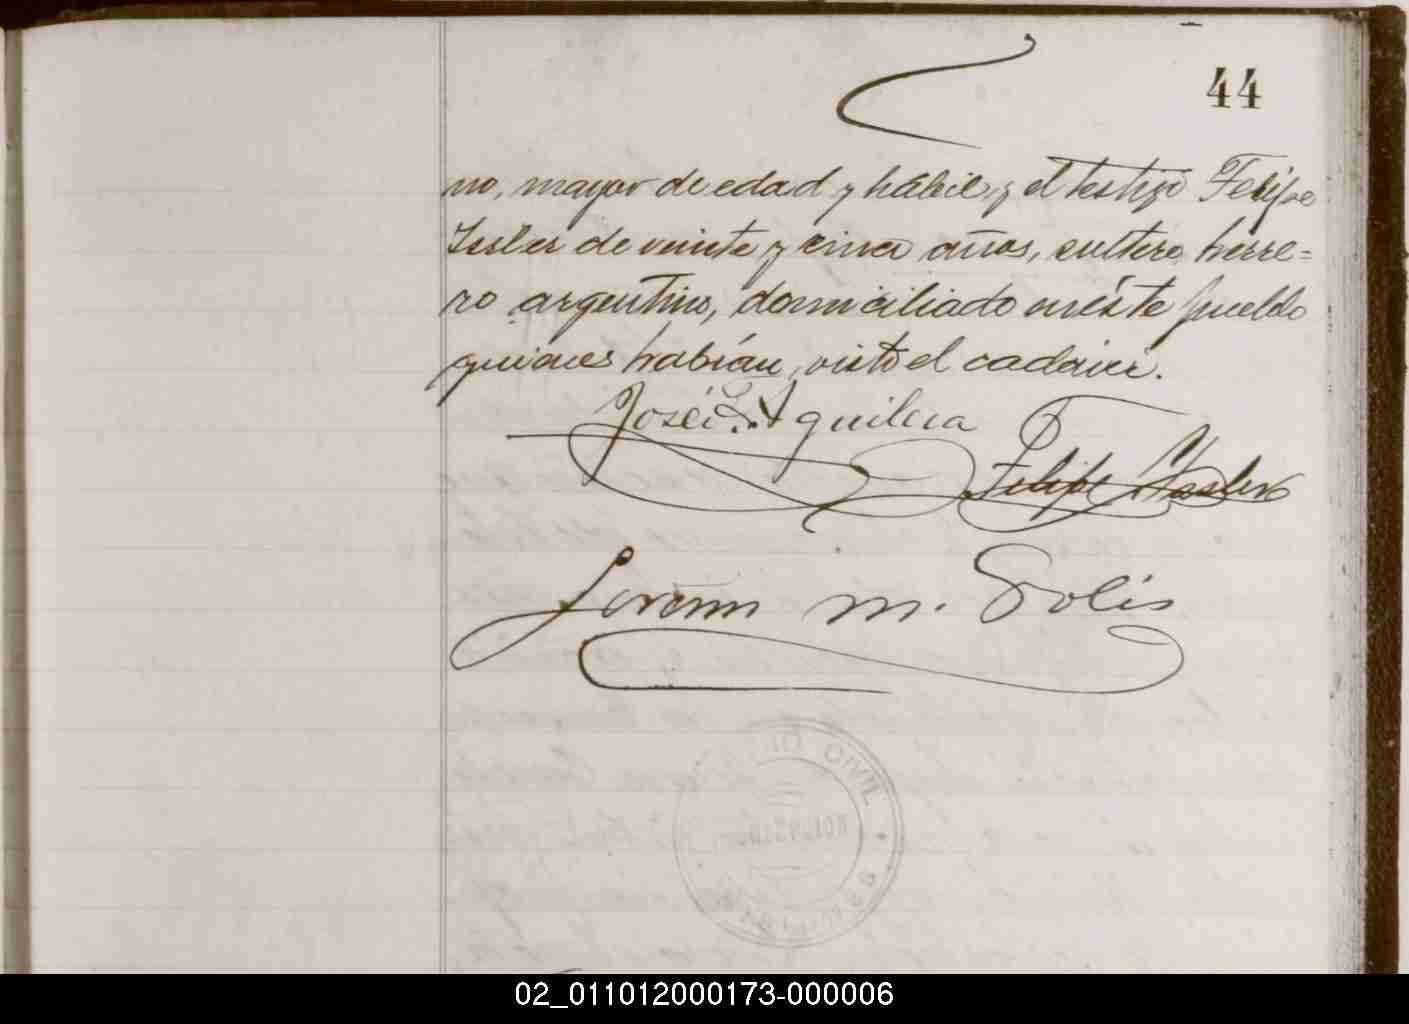 44
no, mayor de edad y hábil, y el testigo Felipe
Isler de veinte y cinco años, soltero, herre=
ro argentino, domiciliado en éste pueblo
quienes habían visto el cadáver.
José L. Aguilera
Felipe Isler
Lorenzo M. Solis
CIVIL
02_011012000173-000006